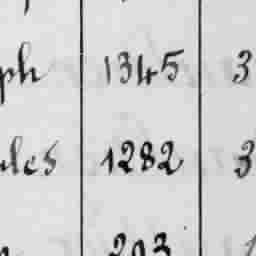 ph 1345 3
ules 1282 3
293